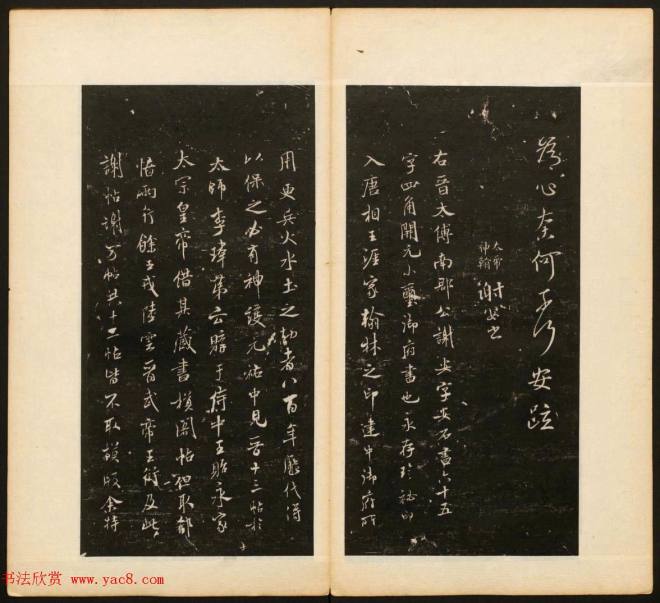 為心奈何奈何安疏
太常
神翰
謝安書
右晉太傅南郡公謝安字安石書六十五
字四角開元小璽御府書也永存珍秘印
入唐相王涯家翰林之印建中御府所
用更兵火水土之劫者八百年歷代得
以保之必有神護元祐中見晉十三帖於
太師李瑋第云購于侍中王貽永家
太宗皇帝借其藏書模閣帖但取郗
愔兩行餘王戎陸雲晉武帝王衍及此
謝帖謝万帖共十二帖皆不取模版余特
书法欣赏 www.yac8.com